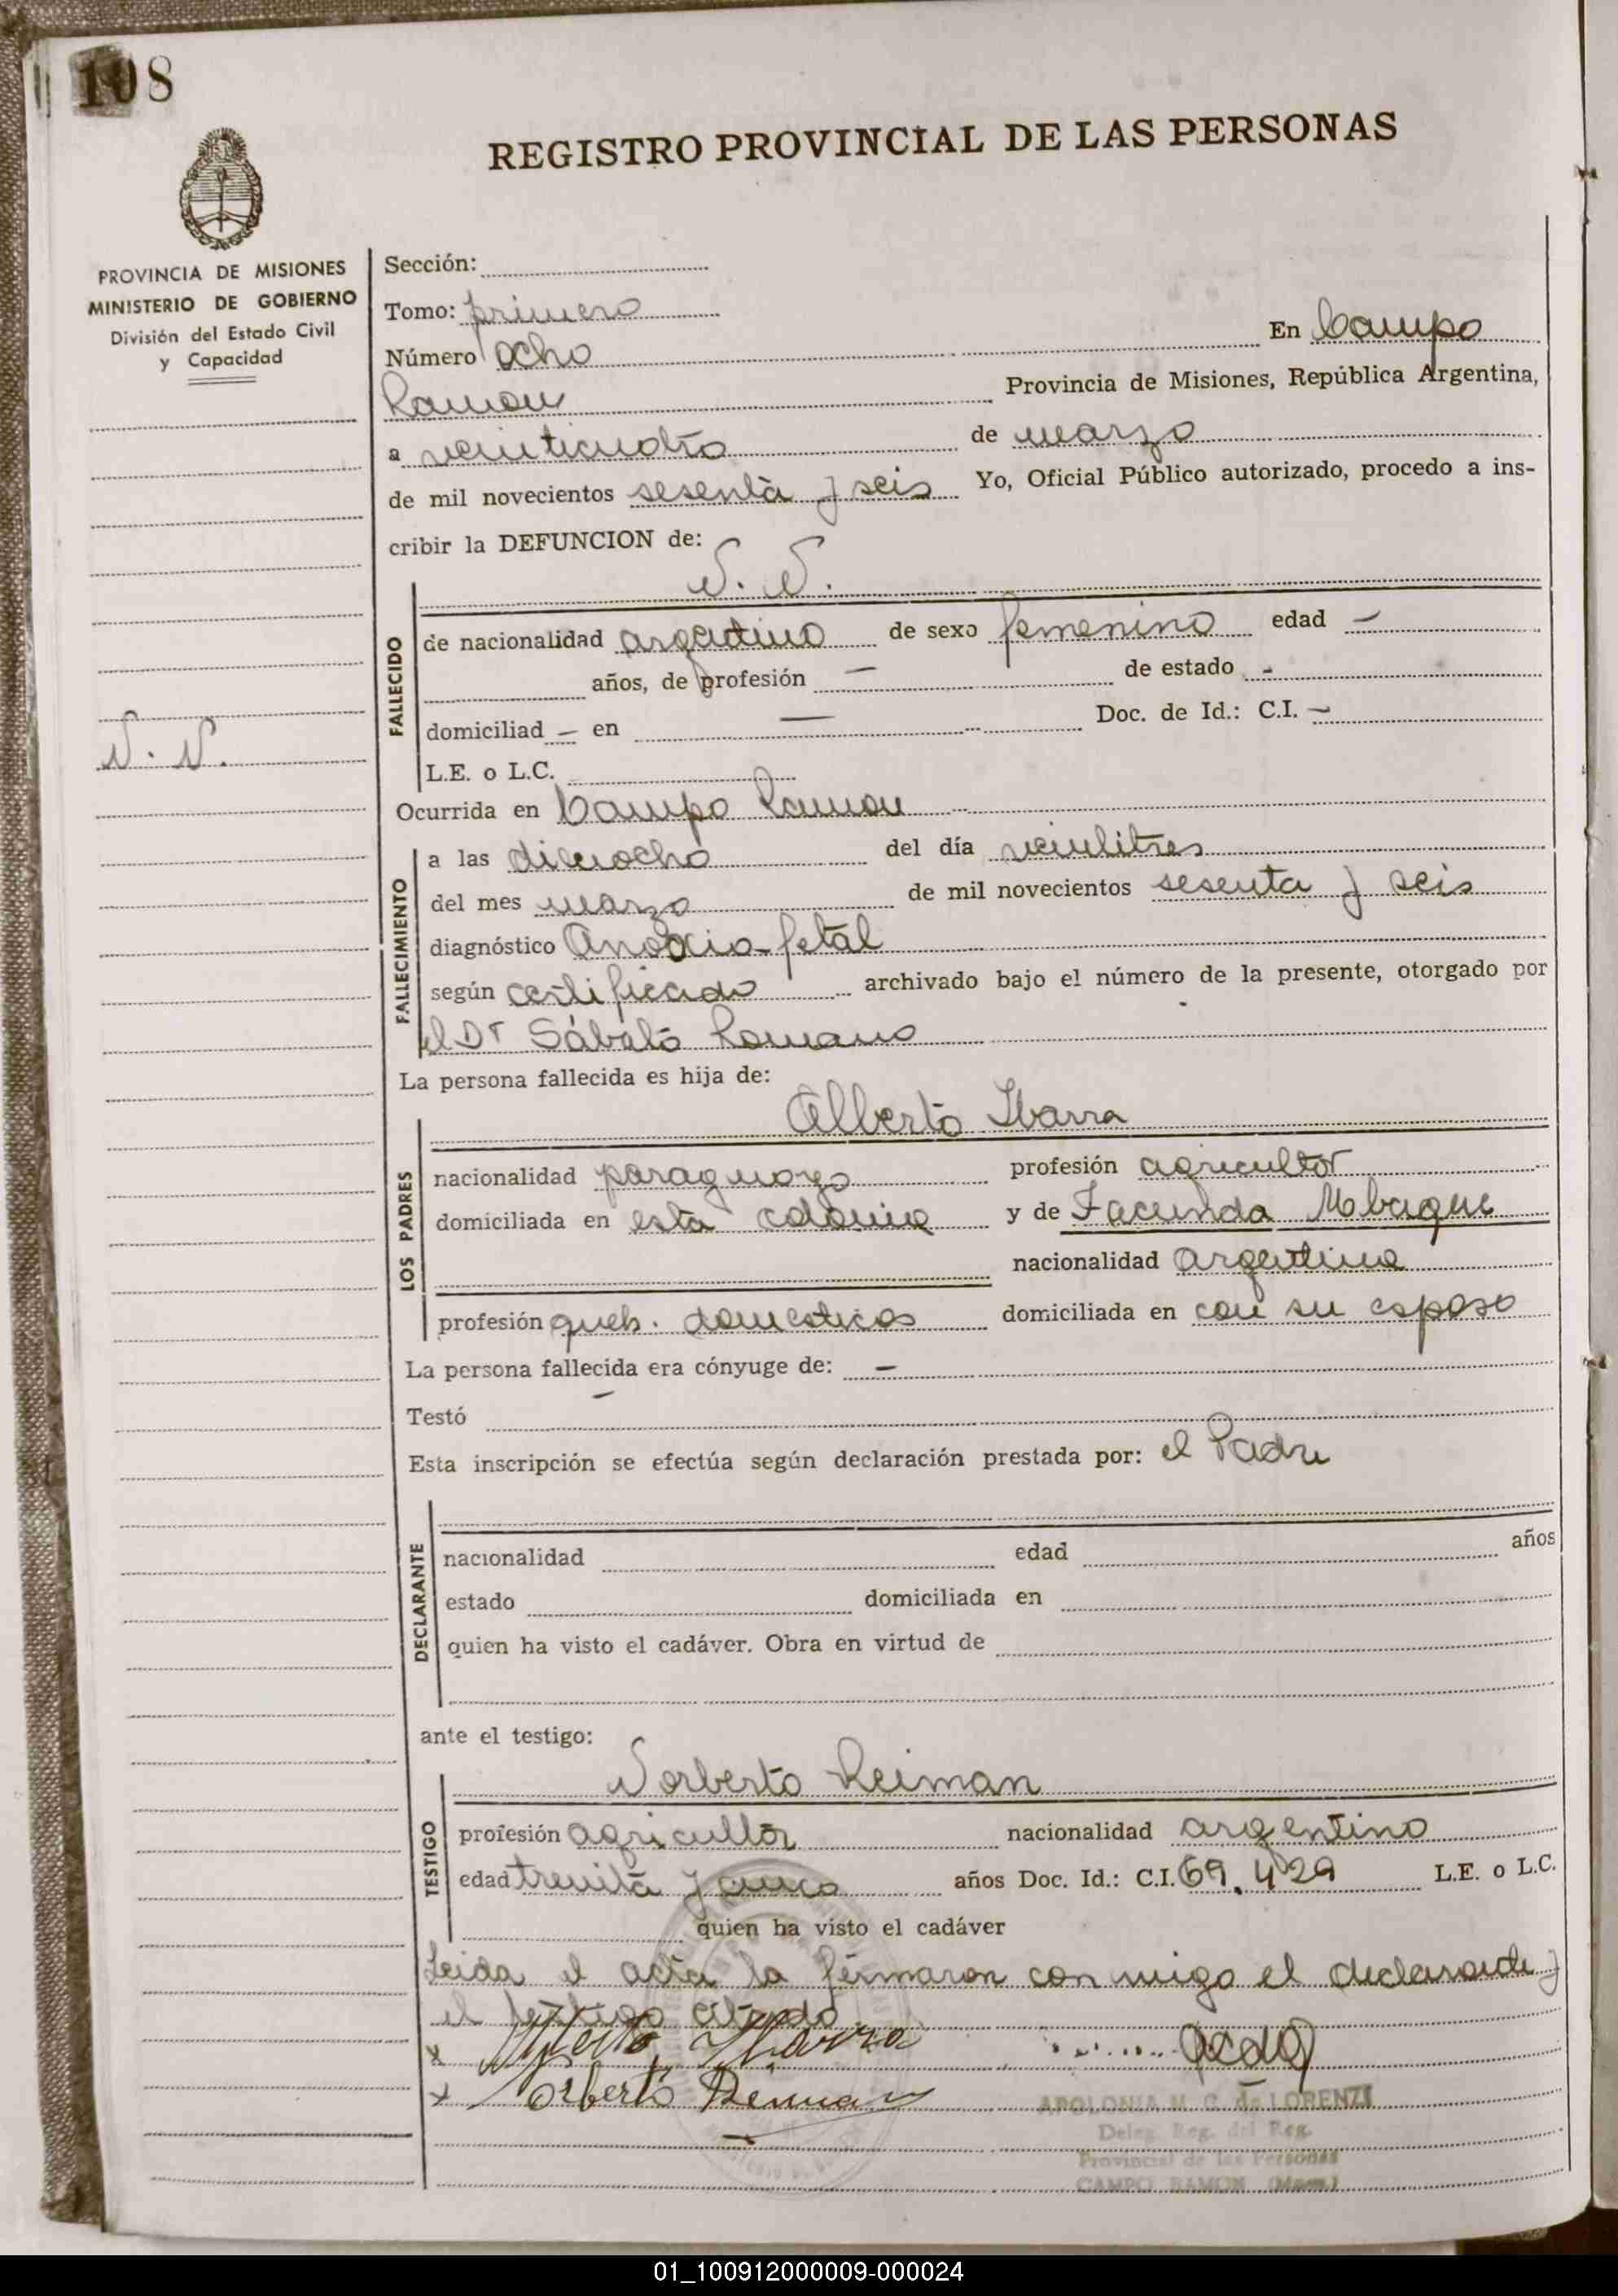 108
REGISTRO PROVINCIAL DE LAS PERSONAS
PROVINCIA DE MISIONES
MINISTERIO DE GOBIERNO
División del Estado Civil
y Capacidad
N. N.
Sección:
Tomo: primero
Número ocho En Campo
Ramon Provincia de Misiones, República Argentina,
a veinticuatro de marzo
de mil novecientos sesenta y seis Yo, Oficial Público autorizado, procedo a ins-
cribir la DEFUNCION de:
N. N.
FALLECIDO
de nacionalidad argentino de sexo femenino edad —
años, de profesión — de estado -
domiciliad — en — Doc. de Id.: C.I. —
L.E. o L.C.
Ocurrida en Campo Ramon
FALLECIMIENTO
a las dieciocho del día veintitres
del mes marzo de mil novecientos sesenta y seis
diagnóstico Anoxia fetal
según certificado archivado bajo el número de la presente, otorgado por
el Dr Sábato Romano
La persona fallecida es hija de:
Alberto Ibarra
LOS PADRES
nacionalidad paraguayo profesión agricultor
domiciliada en esta colonia y de Facunda Mbaque
nacionalidad argentina
profesión queh. domesticos domiciliada en con su esposo
La persona fallecida era cónyuge de: —
Testó —
Esta inscripción se efectúa según declaración prestada por: el Padre
DECLARANTE
nacionalidad edad años
estado domiciliada en
quien ha visto el cadáver. Obra en virtud de
ante el testigo:
Norberto Reiman
TESTIGO
profesión agricultor nacionalidad argentino
edad treinta y cinco años Doc. Id.: C.I. 69.429 L.E. o L.C.
quien ha visto el cadáver
Leida el acta la firmaron con migo el declarante y
el testigo citado
x Alberto Ibarra
x Norberto Reiman
APOLONIA M. G. de LORENZI
Deleg. Reg. del Reg.
Provincial de las Personas
CAMPO RAMON (Mnes.)
01_100912000009-000024